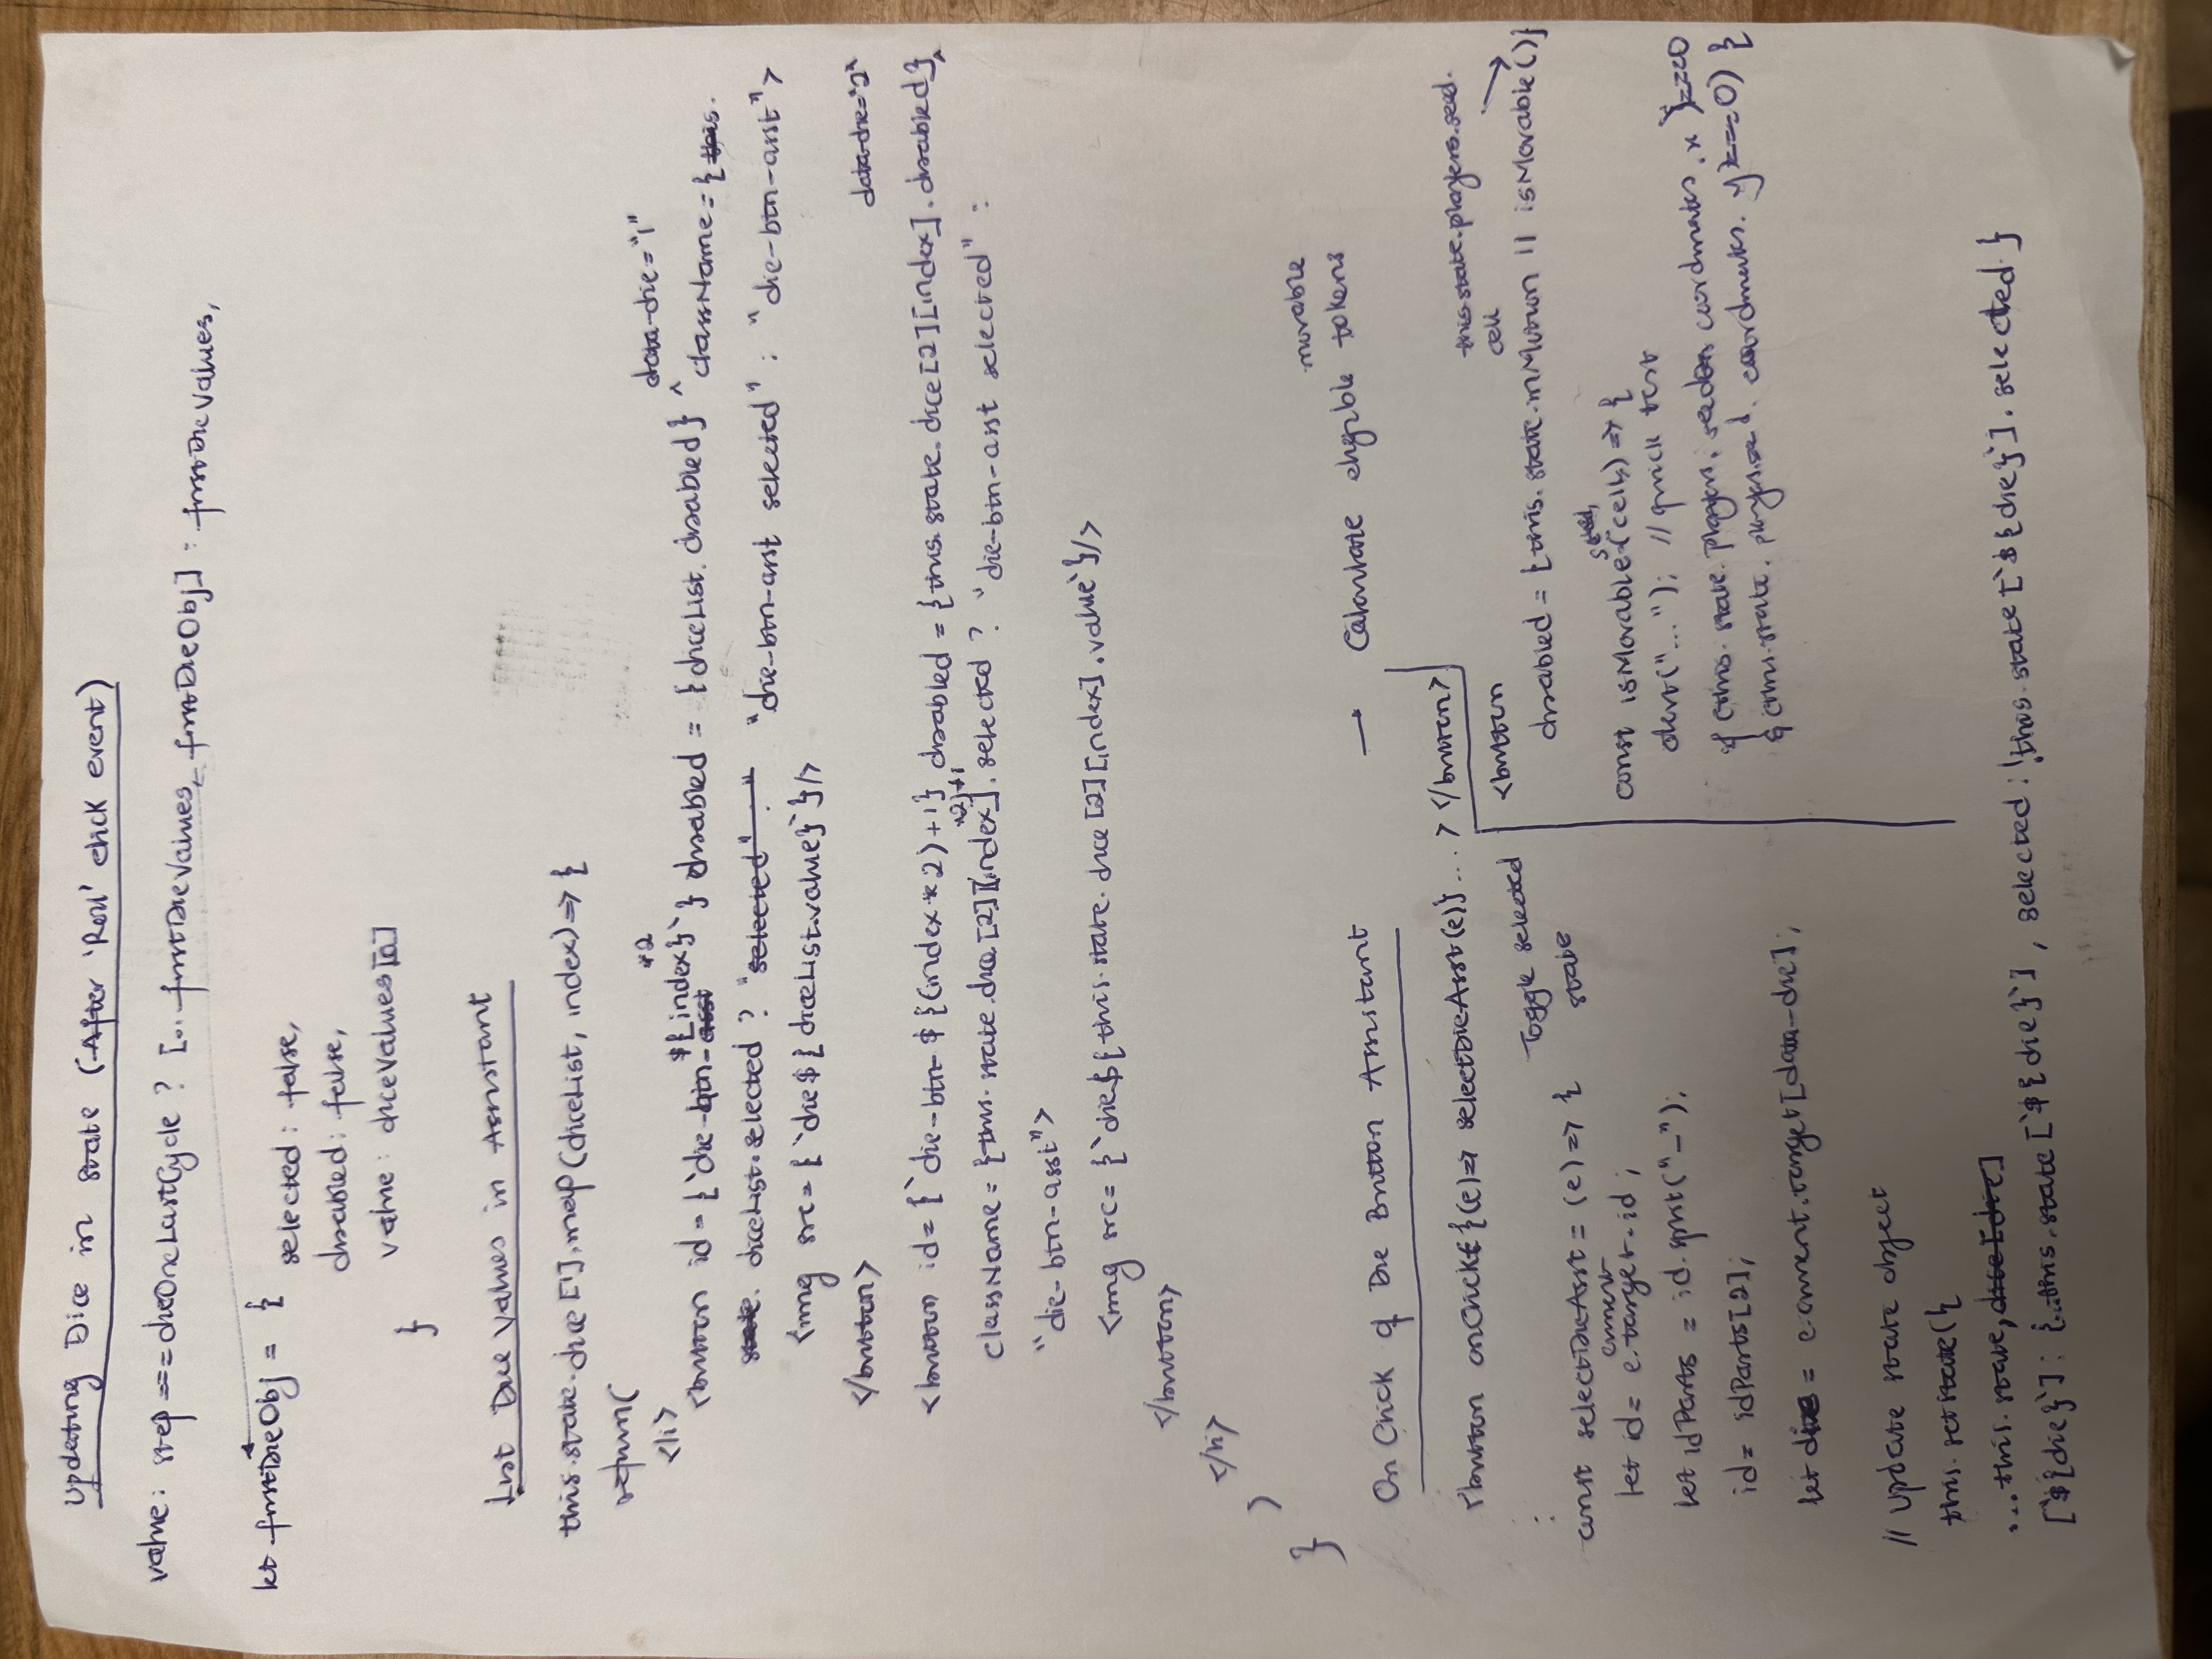 Updating Dice in state (After 'Roll' click event)
value: step === dieOneLastCycle ? [...firstDieValues, firstDieObj] : firstDieValues,
let firstDieObj = {
selected: false,
disabled: false,
value: diceValues[0]
}
List Dice Values in Assistant
this.state.dice[1].map(diceList, index) => {
return(
<li>
*2
data-die="1"
${index}`
<button id={`die-btn-asst } disabled = {diceList.disabled} ^ className={this.
state. diceList.selected ? "selected" : " "die-btn-asst selected" : "die-btn-asst">
<img src={`die${diceList.value}`}/>
</button>
data-die="2"
<button id={`die-btn-${(index*2)+1} disabled = {this.state.dice[2][index].disabled}^
*2)+1
className={this.state.dice[2][(index].selected ? "die-btn-asst selected" :
"die-btn-asst">
<img src={`die${this.state.dice[2][index].value`}/>
</button>
</li>
)
}
On Click of Die Button Assistant
<button onClick={(e)=> selectDieAsst(e)}...></button>
:
Toggle selected
state
const selectDieAsst = (e) => {
current
let id= e.target.id;
let idParts = id.split("-");
id= idParts[2];
let die = e.current.target[data-die];
// Update state object
this.setState({
...this.state, dice[die]
[`${die}`]: {...this.state[`${die}`], selected: !this.state[`${die}`].selected }
movable
→ Calculate eligible tokens
this.state.players.seed.
cell
<button
disabled = {this.state.inMotion || isMovable()}
seed,
const isMovable=(cell,) => {
alert("..."); // quick test
if (this.state.players. coordinates.x)===0
& (this.state.players.seed. coordinates.y)===0) {